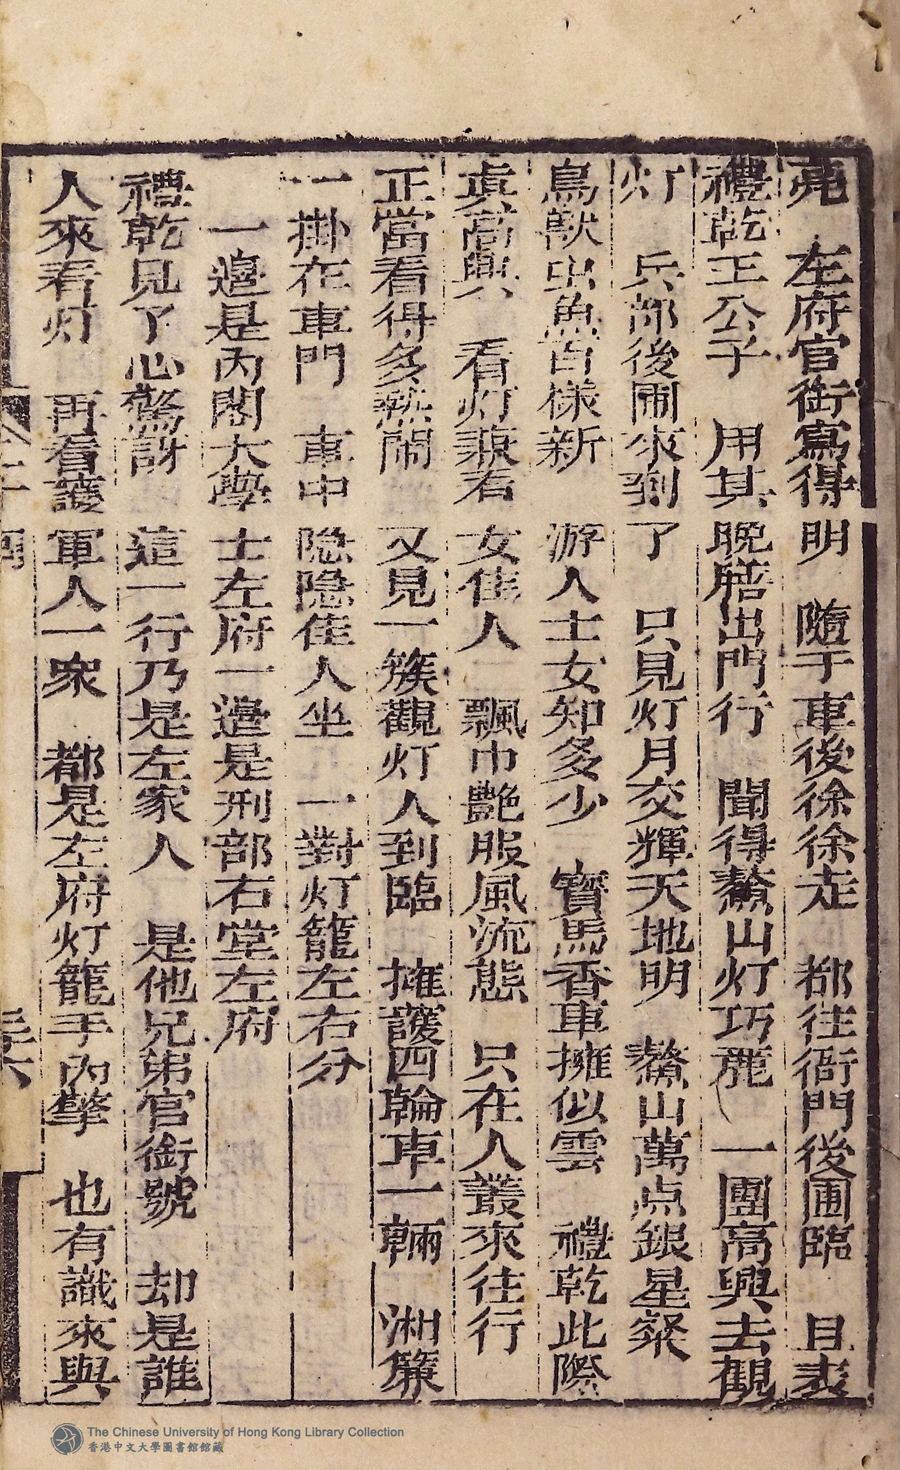 亮　左府官銜寫得明　隨于車後徐徐走　都往衙門後圃臨　且表
禮乾王公子　用其晚膳出門行　聞得鰲山灯巧麗　一團高興去觀
灯　兵部後闹來到了　只見灯月交輝天地明　鰲山萬点銀星粲
鳥獸虫魚百樣新　游人士女知多少　寳馬香車擁似雲　禮乾此際
真高興　看灯兼看女佳人　飄巾艷服風流態　只在人叢來往行
正當看得多熱鬧　又見一簇觀灯人到臨　擁護四輪車一輛　湘簾
一掛在車門　車中隐隐佳人坐　一對灯籠左右分
一邉是内閣大學士左府一邉是刑部右堂左府
禮乾見了心驚訝　這一行乃是左家人　是他兄弟官銜號　却是誰
人來看灯　再看護軍人一衆　都是左府灯籠手内擎　也有識來與
The Chinese University of Hong Kong Library Collection
香港中文大學圖書館館藏